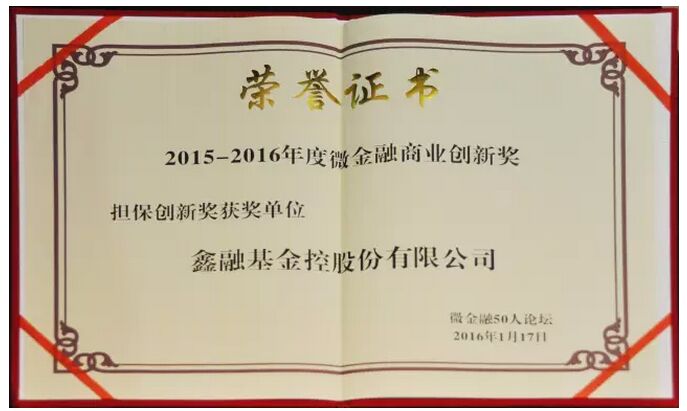 荣誉证书
2015-2016年度微金融商业创新奖
担保创新奖获奖单位
鑫融基金控股份有限公司
微金融50人论坛
2016年1月17日